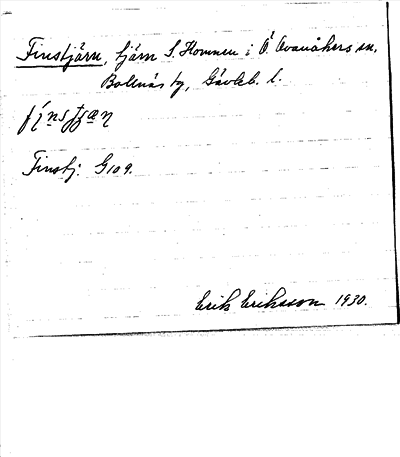 Finstjärn, tjärn S. Homnen i Ö. Ovanåkers sn,
Bollnäs tg, Gävleb. l.
fínstjæn
Finstj. G 109.
Erik Eriksson 1930.